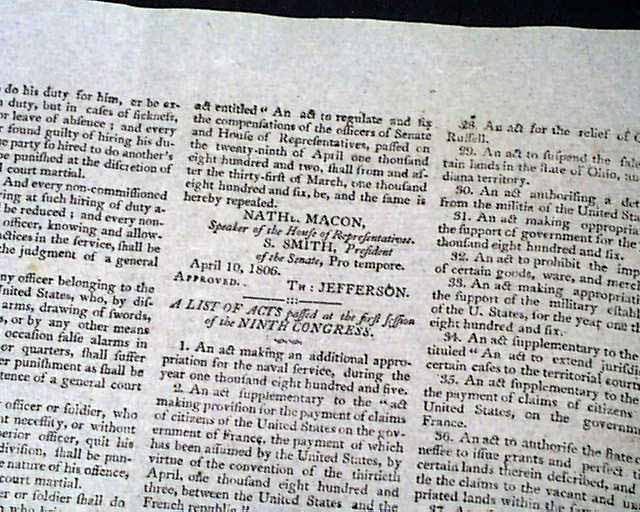 do his duty for him, or be ex-
duty, but in cases of sickness,
or leave of absence ; and every
found guilty of hiring his du-
party so hired to do another's
be punished at the discretion of
court martial.
And every non-commissioned
at such hiring of duty a-
be reduced ; and every non-
officer, knowing and allow-
practices in the service, shall be
the judgment of a general
any officer belonging to the
United States, who, by dis-
arms, drawing of swords,
or by any other means
occasion false alarms in
or quarters, shall suffer
punishment as shall be
sentence of a general court
officer or soldier, who
necessity, or without
officer, quit his
division, shall be pun-
nature of his offence,
court martial.
or soldier shall do
act entitled " An act to regulate and fix
the compensations of the officers of Senate
and House of Representatives, passed on
the twenty-ninth of April one thousand
eight hundred and two, shall from and af-
ter the thirty-first of March, one thousand
eight hundred and six, be, and the same is
hereby repealed.
NATHL. MACON,
Speaker of the House of Representatives.
S. SMITH, President
of the Senate, Pro tempore.
April 10, 1806.
APPROVED.
TH: JEFFERSON.
A LIST OF ACTS passed at the first session
of the NINTH CONGRESS.
1. An act making an additional appro-
priation for the naval service, during the
year one thousand eight hundred and five.
2. An act supplementary to the "act
making provision for the payment of claims
of citizens of the United States on the gov-
ernment of France, the payment of which
has been assumed by the United States, by
virtue of the convention of the thirtieth
April, one thousand eight hundred and
three, between the United States and the
French republic."
28. An act for the relief of
Russell.
29. An act to suspend the sale
tain lands in the state of Ohio, an
diana territory.
30. An act authorising a det
from the militia of the United Sta
31. An act making appropria
the support of government for the
thousand eight hundred and six.
32. An act to prohibit the imp
of certain goods, ware, and merc
33. An act making appropriat
the support of the military establ
of the U. States, for the year one t
eight hundred and six.
34. An act supplementary to the
tituled " An act to extend jurisdi
certain cases to the territorial court
35. An act supplementary to the
the payment of claims of citizens
United States, on the governm
France.
36. An act to authorise the state o
nessee to issue grants and perfect
certain lands therein described, and
tle the claims to the vacant and u
priated lands within the same
37.